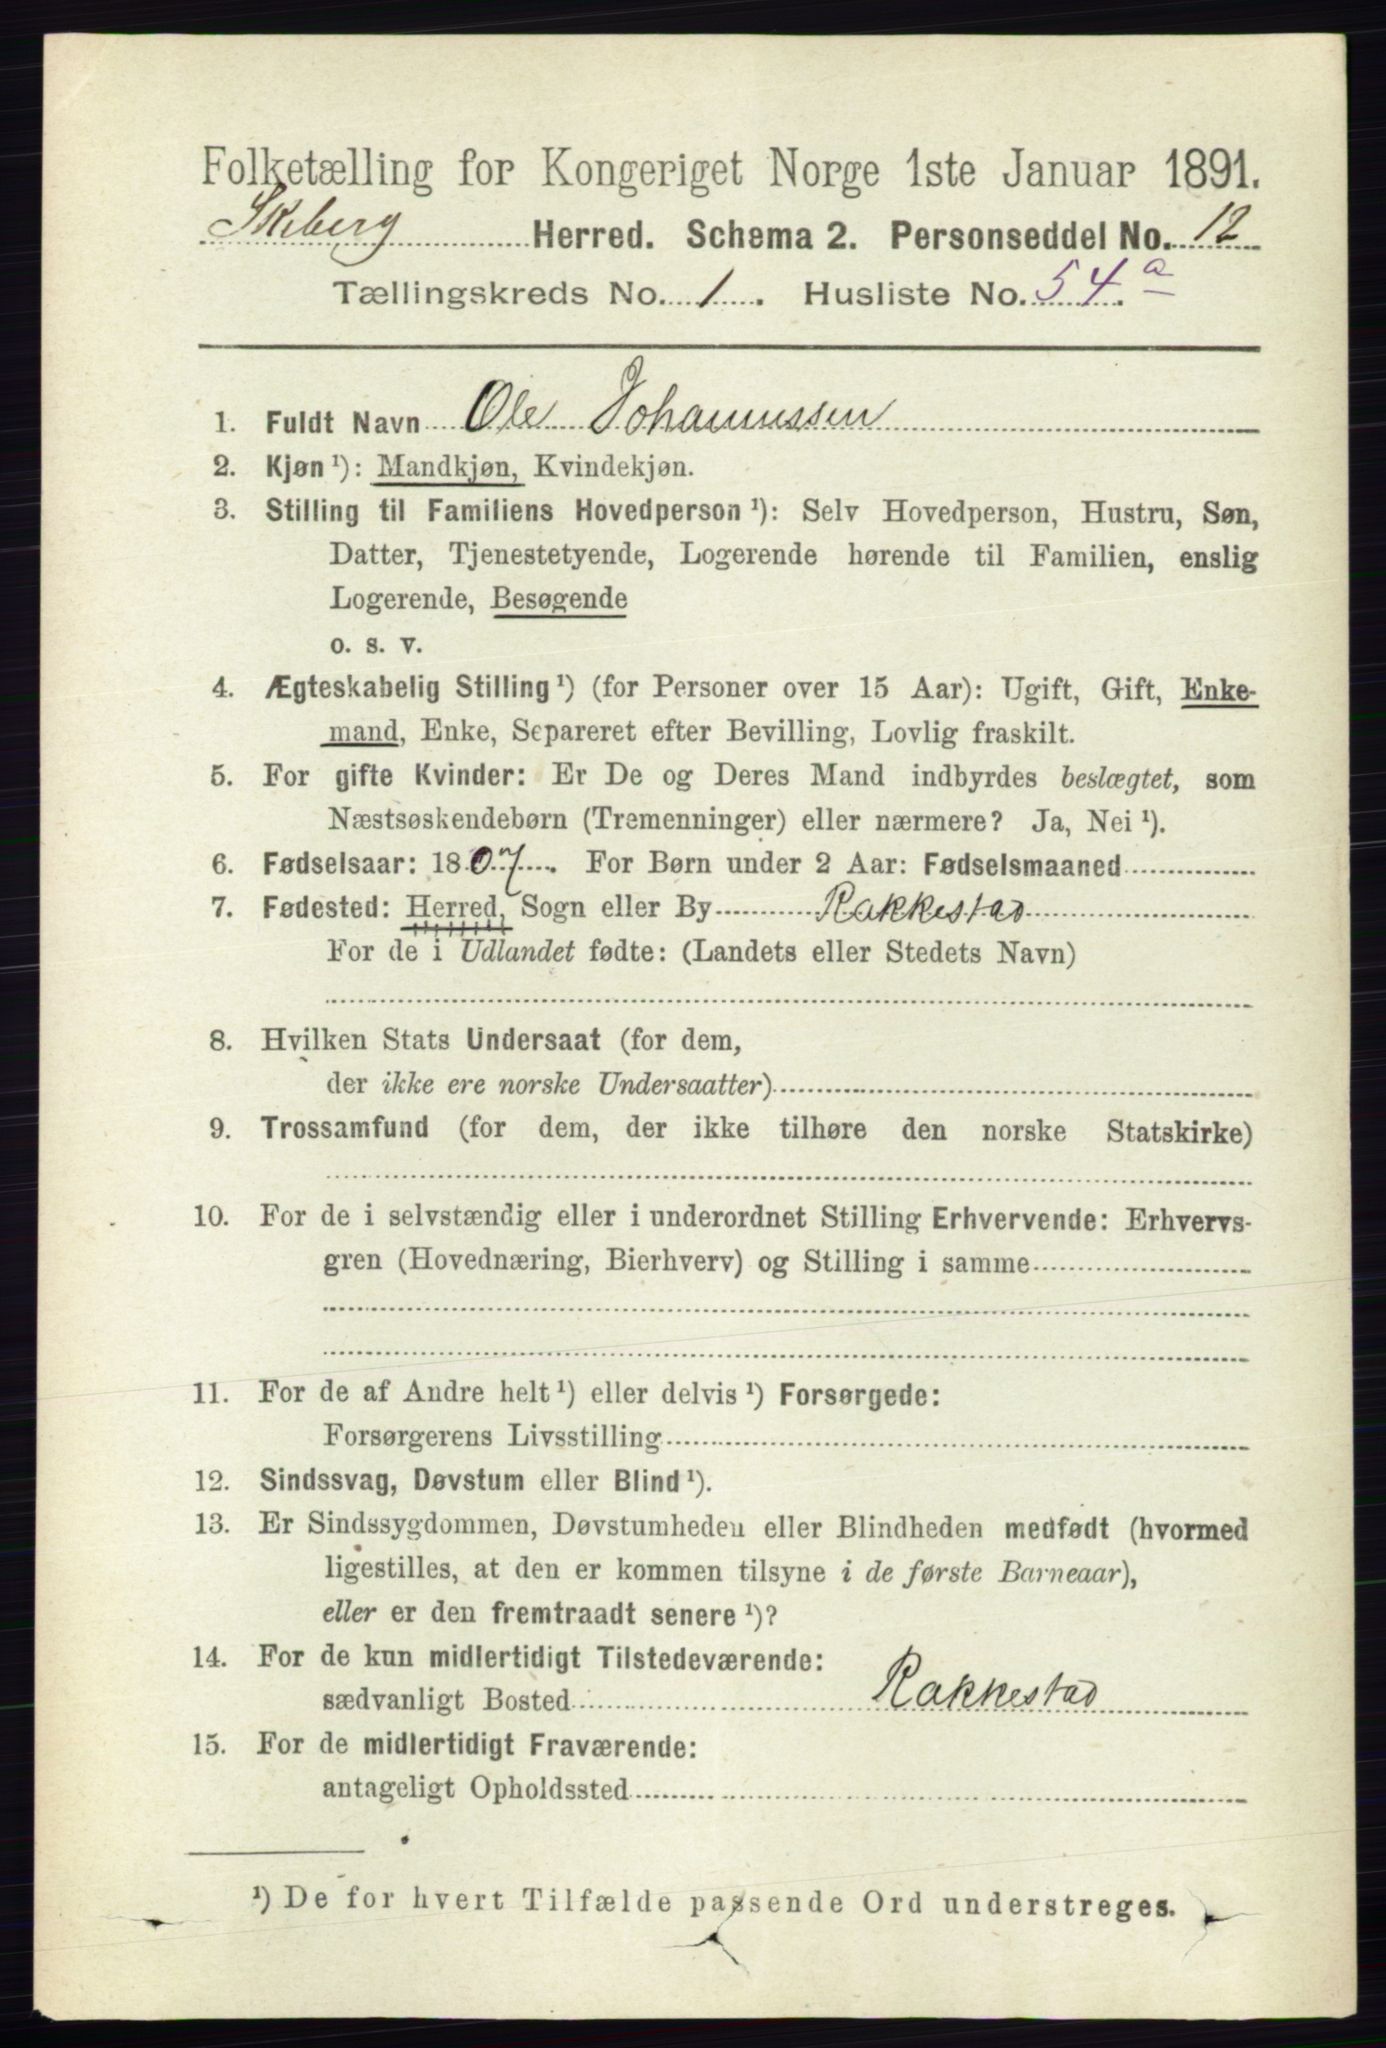 Folketælling for Kongeriget Norge 1ste Januar 1891.
Skeberg Herred. Schema 2. Personseddel No. 12
Tællingskreds No. 1. Husliste No. 54.a
1. Fuldt Navn Ole Johannessen
2. Kjøn ¹): Mandkjøn, Kvindekjøn.
3. Stilling til Familiens Hovedperson ¹): Selv Hovedperson, Hustru, Søn,
Datter, Tjenestetyende, Logerende hørende til Familien, enslig
Logerende, Besøgende
o. s. v.
4. Ægteskabelig Stilling ¹) (for Personer over 15 Aar): Ugift, Gift, Enke-
mand, Enke, Separeret efter Bevilling, Lovlig fraskilt.
5. For gifte Kvinder: Er De og Deres Mand indbyrdes beslægtet, som
Næstsøskendebørn (Tremenninger) eller nærmere? Ja, Nei ¹).
6. Fødselsaar: 1807. For Børn under 2 Aar: Fødselsmaaned
7. Fødested: Herred, Sogn eller By Rakkestad
For de i Udlandet fødte: (Landets eller Stedets Navn)
8. Hvilken Stats Undersaat (for dem,
der ikke ere norske Undersaatter)
9. Trossamfund (for dem, der ikke tilhøre den norske Statskirke)
10. For de i selvstændig eller i underordnet Stilling Erhvervende: Erhvervs-
gren (Hovednæring, Bierhverv) og Stilling i samme
11. For de af Andre helt ¹) eller delvis ¹) Forsørgede:
Forsørgerens Livsstilling
12. Sindssvag, Døvstum eller Blind ¹).
13. Er Sindssygdommen, Døvstumheden eller Blindheden medfødt (hvormed
ligestilles, at den er kommen tilsyne i de første Barneaar),
eller er den fremtraadt senere ¹)?
14. For de kun midlertidigt Tilstedeværende:
sædvanligt Bosted Rakkestad
15. For de midlertidigt Fraværende:
antageligt Opholdssted
¹) De for hvert Tilfælde passende Ord understreges.